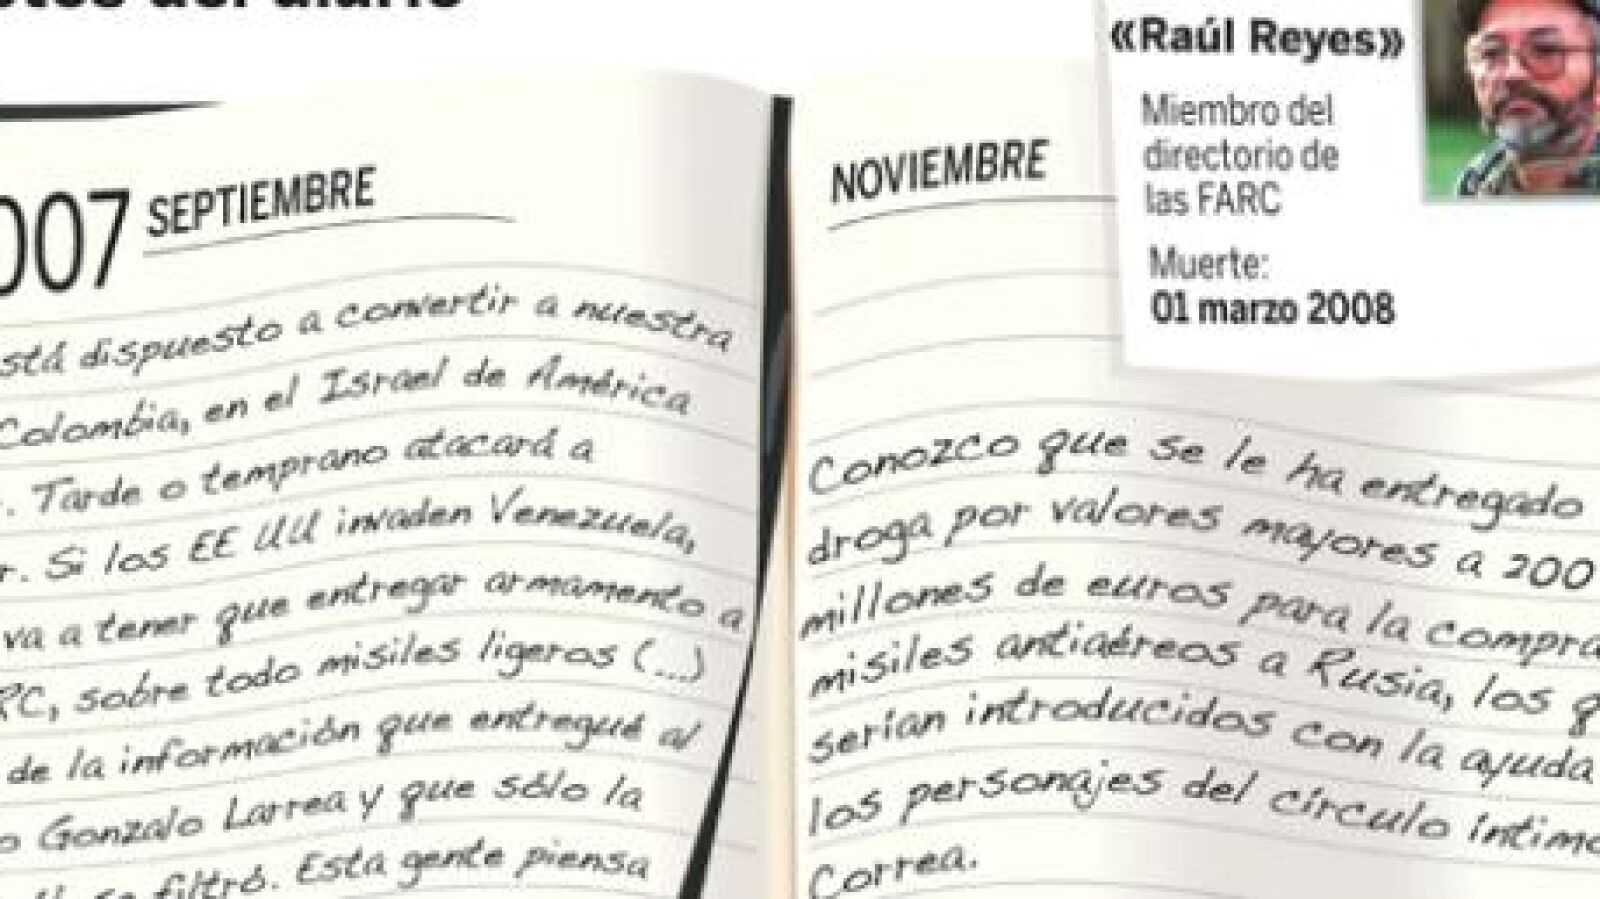 del diario
007 SEPTIEMBRE
stá dispuesto a convertir a nuestra
Colombia, en el Israel de América
. Tarde o temprano atacará a
r. Si los EE UU invaden Venezuela,
va a tener que entregar armamento a
RC, sobre todo misiles ligeros (...)
de la información que entregué al
o Gonzalo Larrea y que sólo la
se filtró. Esta gente piensa
NOVIEMBRE
Conozco que se le ha entregado
droga por valores mayores a 200
millones de euros para la compra
misiles antiaéreos a Rusia, los q
serían introducidos con la ayuda
los personajes del círculo íntimo
Correa.
«Raúl Reyes»
Miembro del
directorio de
las FARC
Muerte:
01 marzo 2008